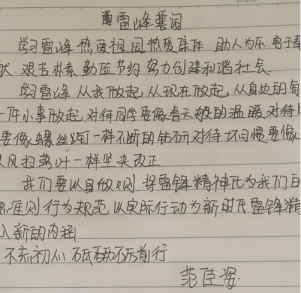 雷锋誓词
学习雷锋 热爱祖国 热爱集体 助人为乐
献 艰苦朴素 勤俭节约 努力创建和谐社会
学习雷锋 从我做起 从现在做起 从身边的每
一件小事做起 对待同学要像春天般的温暖 对待
要像螺丝钉一样不断的钻研 对待坏习惯要像
风扫落叶一样坚决改正
我们要以身作则 把雷锋精神化为我们
准则 行为规范 以实际行动为新时代雷锋精
入新的内涵
不忘初心 砥砺前行